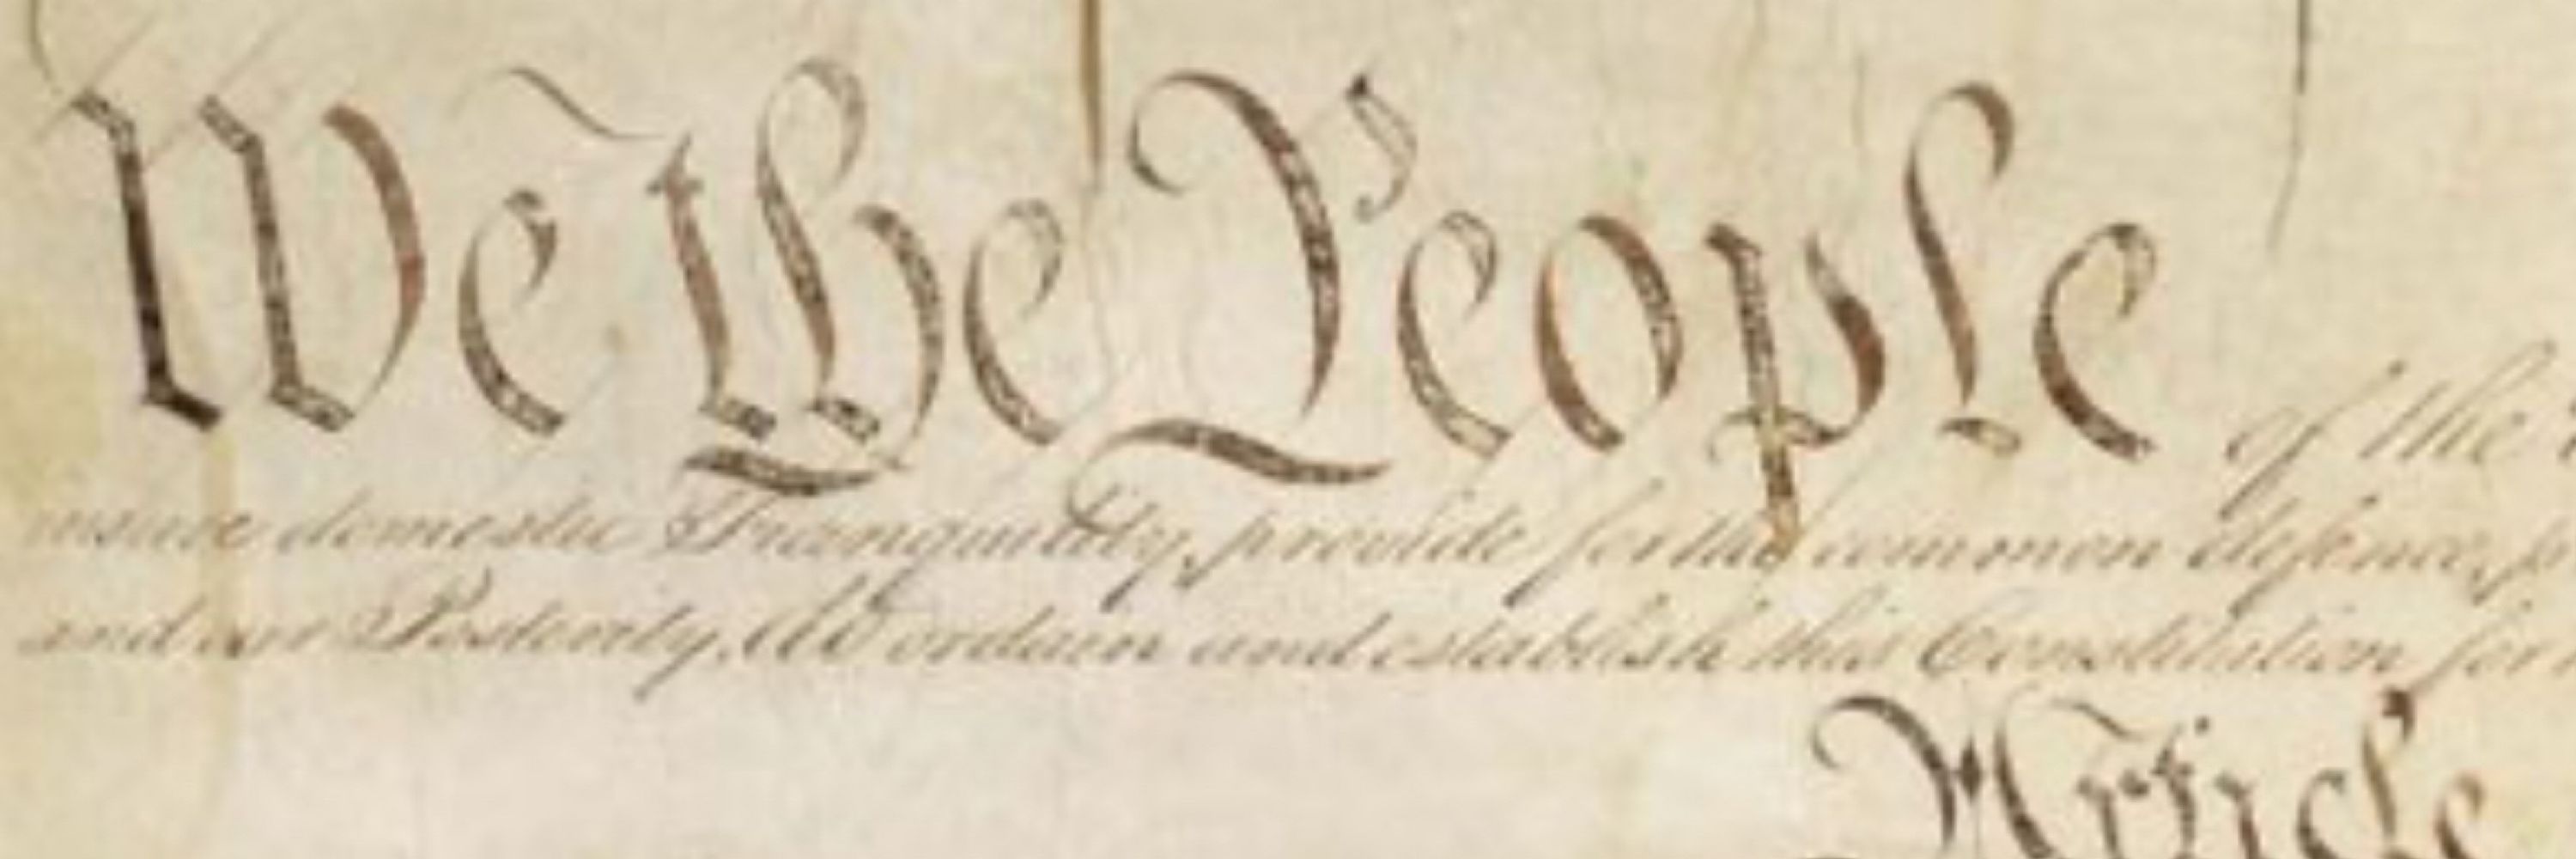 We the People of the
insure domestic Tranquility, provide for the common defence,
and our Posterity, do ordain and establish this Constitution for
Article